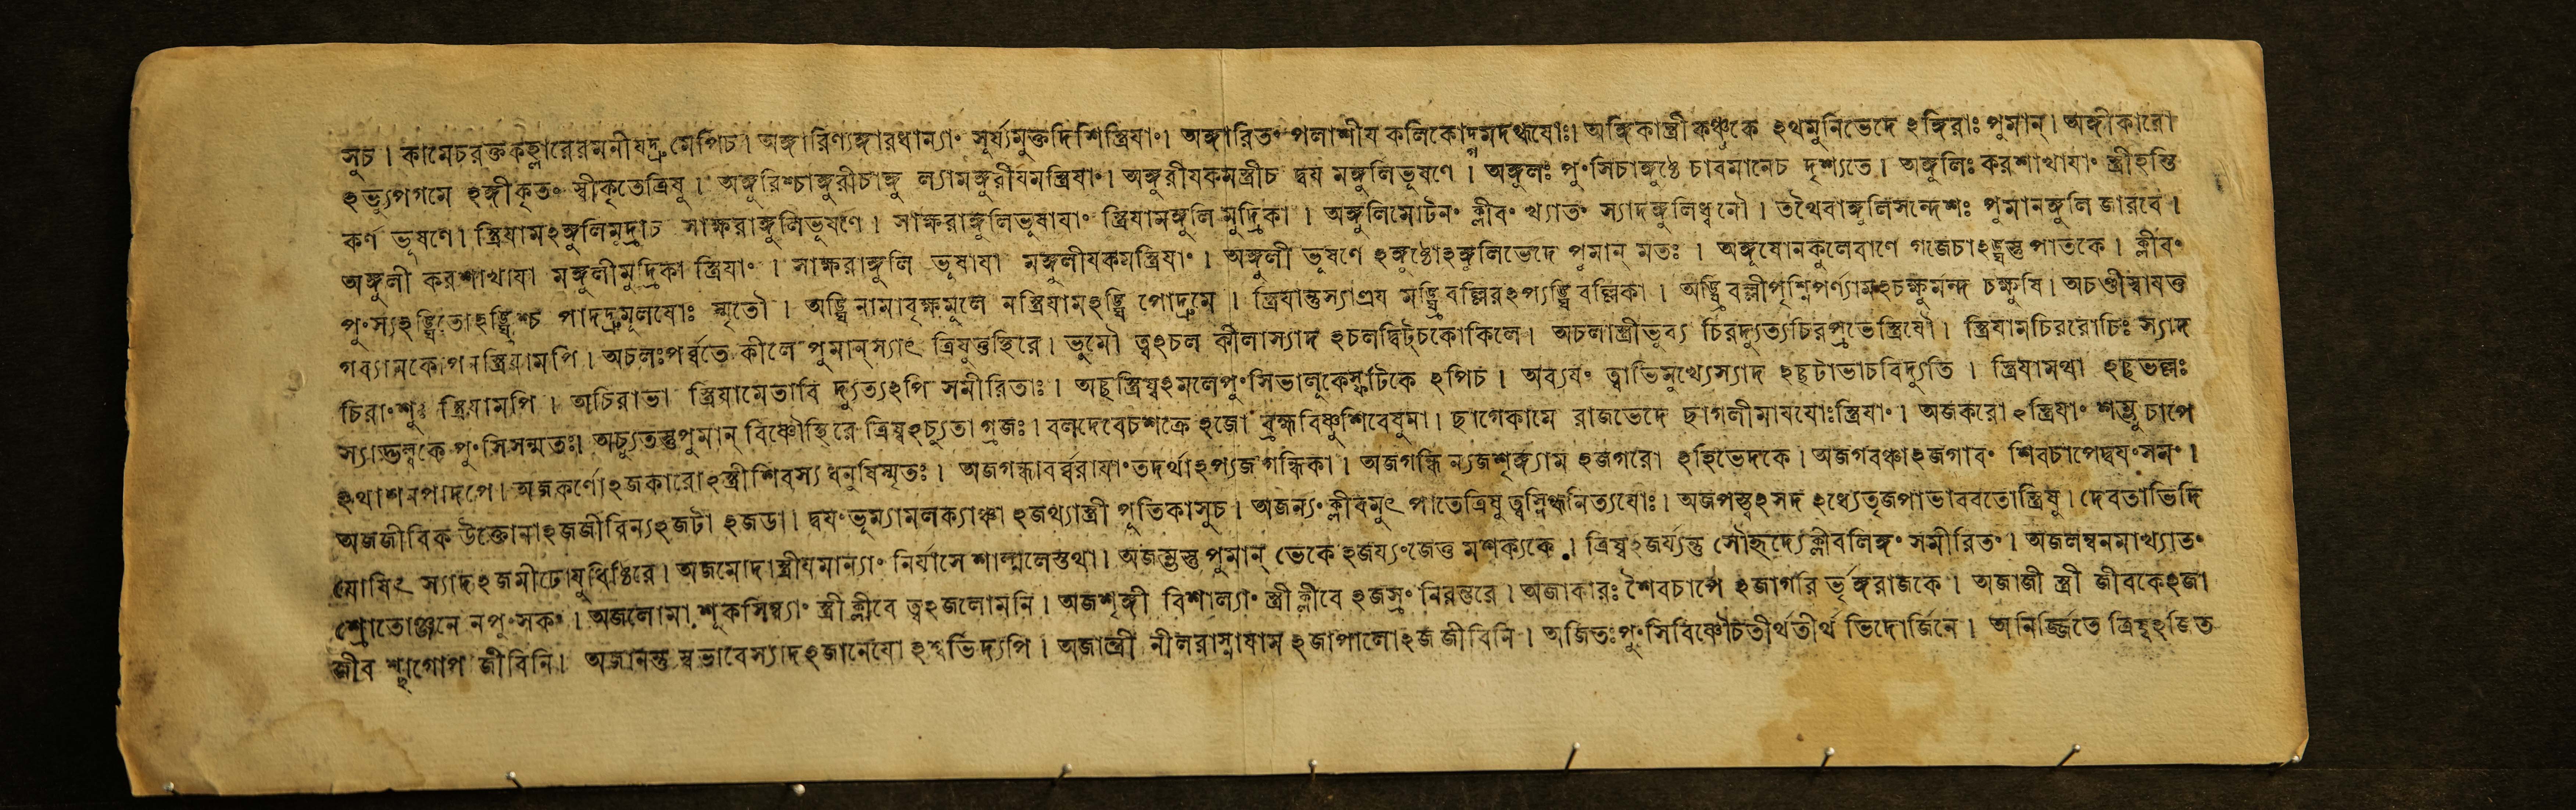 সুচ। কামেচরক্তকহ্লারেরমনীযদ্রুমেপিচ। অঙ্গারিণ্যঙ্গারধান্যাং সূর্য্যমুক্তদিশিস্ত্রিযাং। অঙ্গারিতং পলাশীয কলিকোদ্গমদগ্ধযোঃ। অঙ্গিকাস্ত্রী কঞ্চুকে ঽথমুনিভেদে ঽঙ্গিরাঃ পুমান্। অঙ্গীকারো
ঽভ্যুপগমে ঽঙ্গীকৃতং স্বীকৃতেত্রিষু। অঙ্গুরিশ্চাঙ্গুরীচাঙ্গু ল্যামঙ্গুরীযমস্ত্রিযাং। অঙ্গুরীযকমস্ত্রীচ দ্বয মঙ্গুলিভূষণে। অঙ্গুলঃ পুংসিচাঙ্গুষ্ঠে চাবমানেচ দৃশ্যতে। অঙ্গুলিঃ করশাখাযাং স্ত্রীহস্তি
কর্ণ ভূষণে। স্ত্রিযামঽঙ্গুলিমুদ্রাচ সাক্ষরাঙ্গুলিভূষণে। সাক্ষরাঙ্গুলিভূষাযাং স্ত্রিযামঙ্গুলি মুদ্রিকা। অঙ্গুলিমোটনং ক্লীবং খ্যাতং স্যাদঙ্গুলিধ্বনৌ। তথৈবাঙ্গুলিসন্দেশঃ পুমানঙ্গুলি জারবে।
অঙ্গুলী করশাখাযা মঙ্গুলীমুদ্রিকা স্ত্রিযাং। সাক্ষরাঙ্গুলি ভূষাযা মঙ্গুলীযকমস্ত্রিযাং। অঙ্গুলী ভূষণে ঽঙ্গুষ্ঠোঽঙ্গুলিভেদে পুমান্ মতঃ। অঙ্গূষোনকুলেবাণে গজেচাঽঙ্ঘস্তু পাতকে। ক্লীবং
পুংস্যঽঙ্ঘ্রিতোঽঙ্ঘ্রিশ্চ পাদদ্রুমূলযোঃ স্মৃতৌ। অঙ্ঘ্রি নামাবৃক্ষমূলে নস্ত্রিযামঽঙ্ঘ্রি পোদ্রুমে। স্ত্রিযান্তুস্যাপ্রয মঙ্ঘ্রি বল্লিরঽপ্যঙ্ঘ্রি বল্লিকা। অঙ্ঘ্রি বল্লীপৃশ্নিপর্ণ্যামঽচক্ষুর্মন্দ চক্ষুষি।
অচলঃপর্ব্বতে কীলে পুমান্স্যাৎ ত্রিষুত্তস্থিরে। ভূমৌ ত্বঽচল কীলাস্যাদ ঽচলদ্বিট্চকোকিলে। অচলাস্ত্রীভূব্য চিরদ্যুত্যচিরপ্রভেস্ত্রিযৌ। স্ত্রিযামচিররোচিঃ স্যাদ
চিরাংশুঃ স্ত্রিযামপি। অচিরাভা স্ত্রিযামেতাবি দ্যুত্যঽপি সমীরিতাঃ। অছস্ত্রিষ্বঽমলেপুংসিভালুকেস্ফটিকে ঽপিচ। অব্যযং ত্বাভিমুখ্যেস্যাদ ঽছটাভাচবিদ্যুতি। স্ত্রিযামথা ঽছভল্লঃ
স্যাদ্ভল্লকে পুংসিসন্মতঃ। অচ্যুতস্তুপুমান্ বিষ্ণৌস্থিরে ত্রিষ্বঽচ্যুতা গ্রজঃ। বলদেবেচশক্রে ঽজো ব্রহ্মবিষ্ণুশিবেষুমা। ছাগেকামে রাজভেদে ছাগলীমাযযোঃস্ত্রিযাং। অজকরো ঽস্ত্রিযাং শম্ভু চাপে
ঽথাশনপাদপে। অজকর্ণোঽজকারোঽস্ত্রীশিবস্য ধনুষিস্মৃতঃ। অজগন্ধাবর্ব্বরাযাং তদর্থাঽপ্যজ গন্ধিকা। অজগন্ধি ন্যজশৃঙ্গ্যাম ঽজগরো ঽহিভেদকে। অজগবঞ্চাঽজগাবং শিবচাপেদ্বযংসমং।
অজজীবিক উক্তোনাঽজজীবিন্যঽজটা ঽজডা। দ্বযংভূম্যামলক্যাঞ্চা ঽজথ্যাস্ত্রী পূতিকাসুচ। অজন্যং ক্লীবমুৎ পাতেত্রিষু ত্বস্নিগ্ধনিত্যযোঃ। অজপস্ত্বঽসদ ঽধ্যেতৃজপাভাববতোস্ত্রিষু। দেবতাভিদি
যোষিৎ স্যাদঽজমীঢোযুধিষ্ঠিরে। অজমোদাস্ত্রীযমান্যাং নির্যাসে শাল্মলেস্তথা। অজম্ভস্তু পুমান্ ভেকে ঽজয্যংজেত্ত মশক্যকে। ত্রিষ্বঽজর্য্যন্তু সৌহৃদ্যেক্লীবলিঙ্গং সমীরিতং। অজলম্বনমাখ্যাতং
শ্রোতোঞ্জনে নপুংসকং। অজলোমা শূকসিম্ব্যাং স্ত্রী ক্লীবে ত্বঽজলোমনি। অজশৃঙ্গী বিশাল্যাং স্ত্রী ক্লীবে ঽজস্রং নিরন্তরে। অজাকারঃ শৈবচাপে ঽজাগর র্ভৃঙ্গরাজকে। অজাজী স্ত্রী জীবকেঽজা
জীব শ্ছাগোপ জীবিনি। অজানস্তু স্বভাবেস্যাদঽজানেযো ঽশ্বভিদ্যপি। অজাস্ত্রী নীলরাস্নাযাম ঽজাপালোঽজ জীবিনি। অজিতঃপুংসিবিষ্ণৌচতীর্থতীর্থ ভিদোর্জিনে। অনির্জ্জিতে ত্রিষু